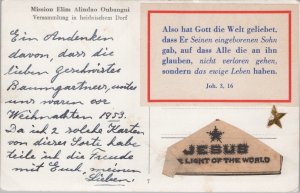 Mission Elim Alindao Oubangui
Versammlung in heidnischem Dorf
Ein Andenken
davon, dass die
lieben Geschwister
Baumgartner, mit
uns waren vor
Weihnachten 1953.
Da ich 2 solche Karten
von dieser Sorte habe
teile ich die Freude
mit Euch, meinen
Lieben.
Also hat Gott die Welt geliebet,
dass Er Seinen eingeborenen Sohn
gab, auf dass Alle die an ihn
glauben, nicht verloren gehen,
sondern das ewige Leben haben.
Joh. 3, 16
JESUS
LIGHT OF THE WORLD